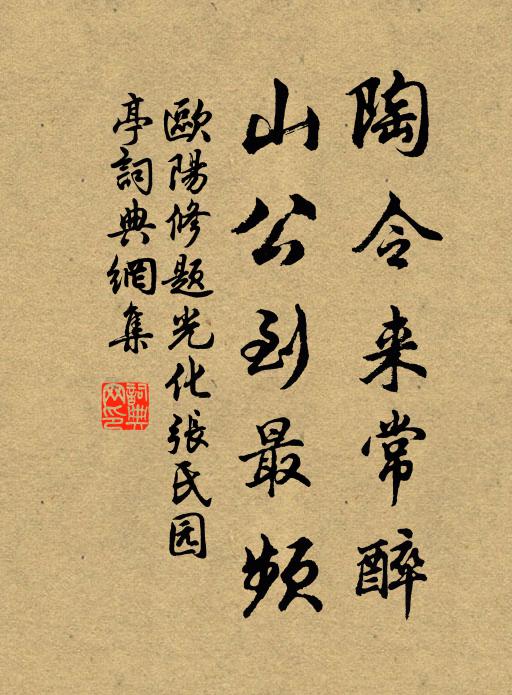 陶令来常醉
山公到最频
歐陽修题光化張氏园
亭詞典網集
詞典
网印